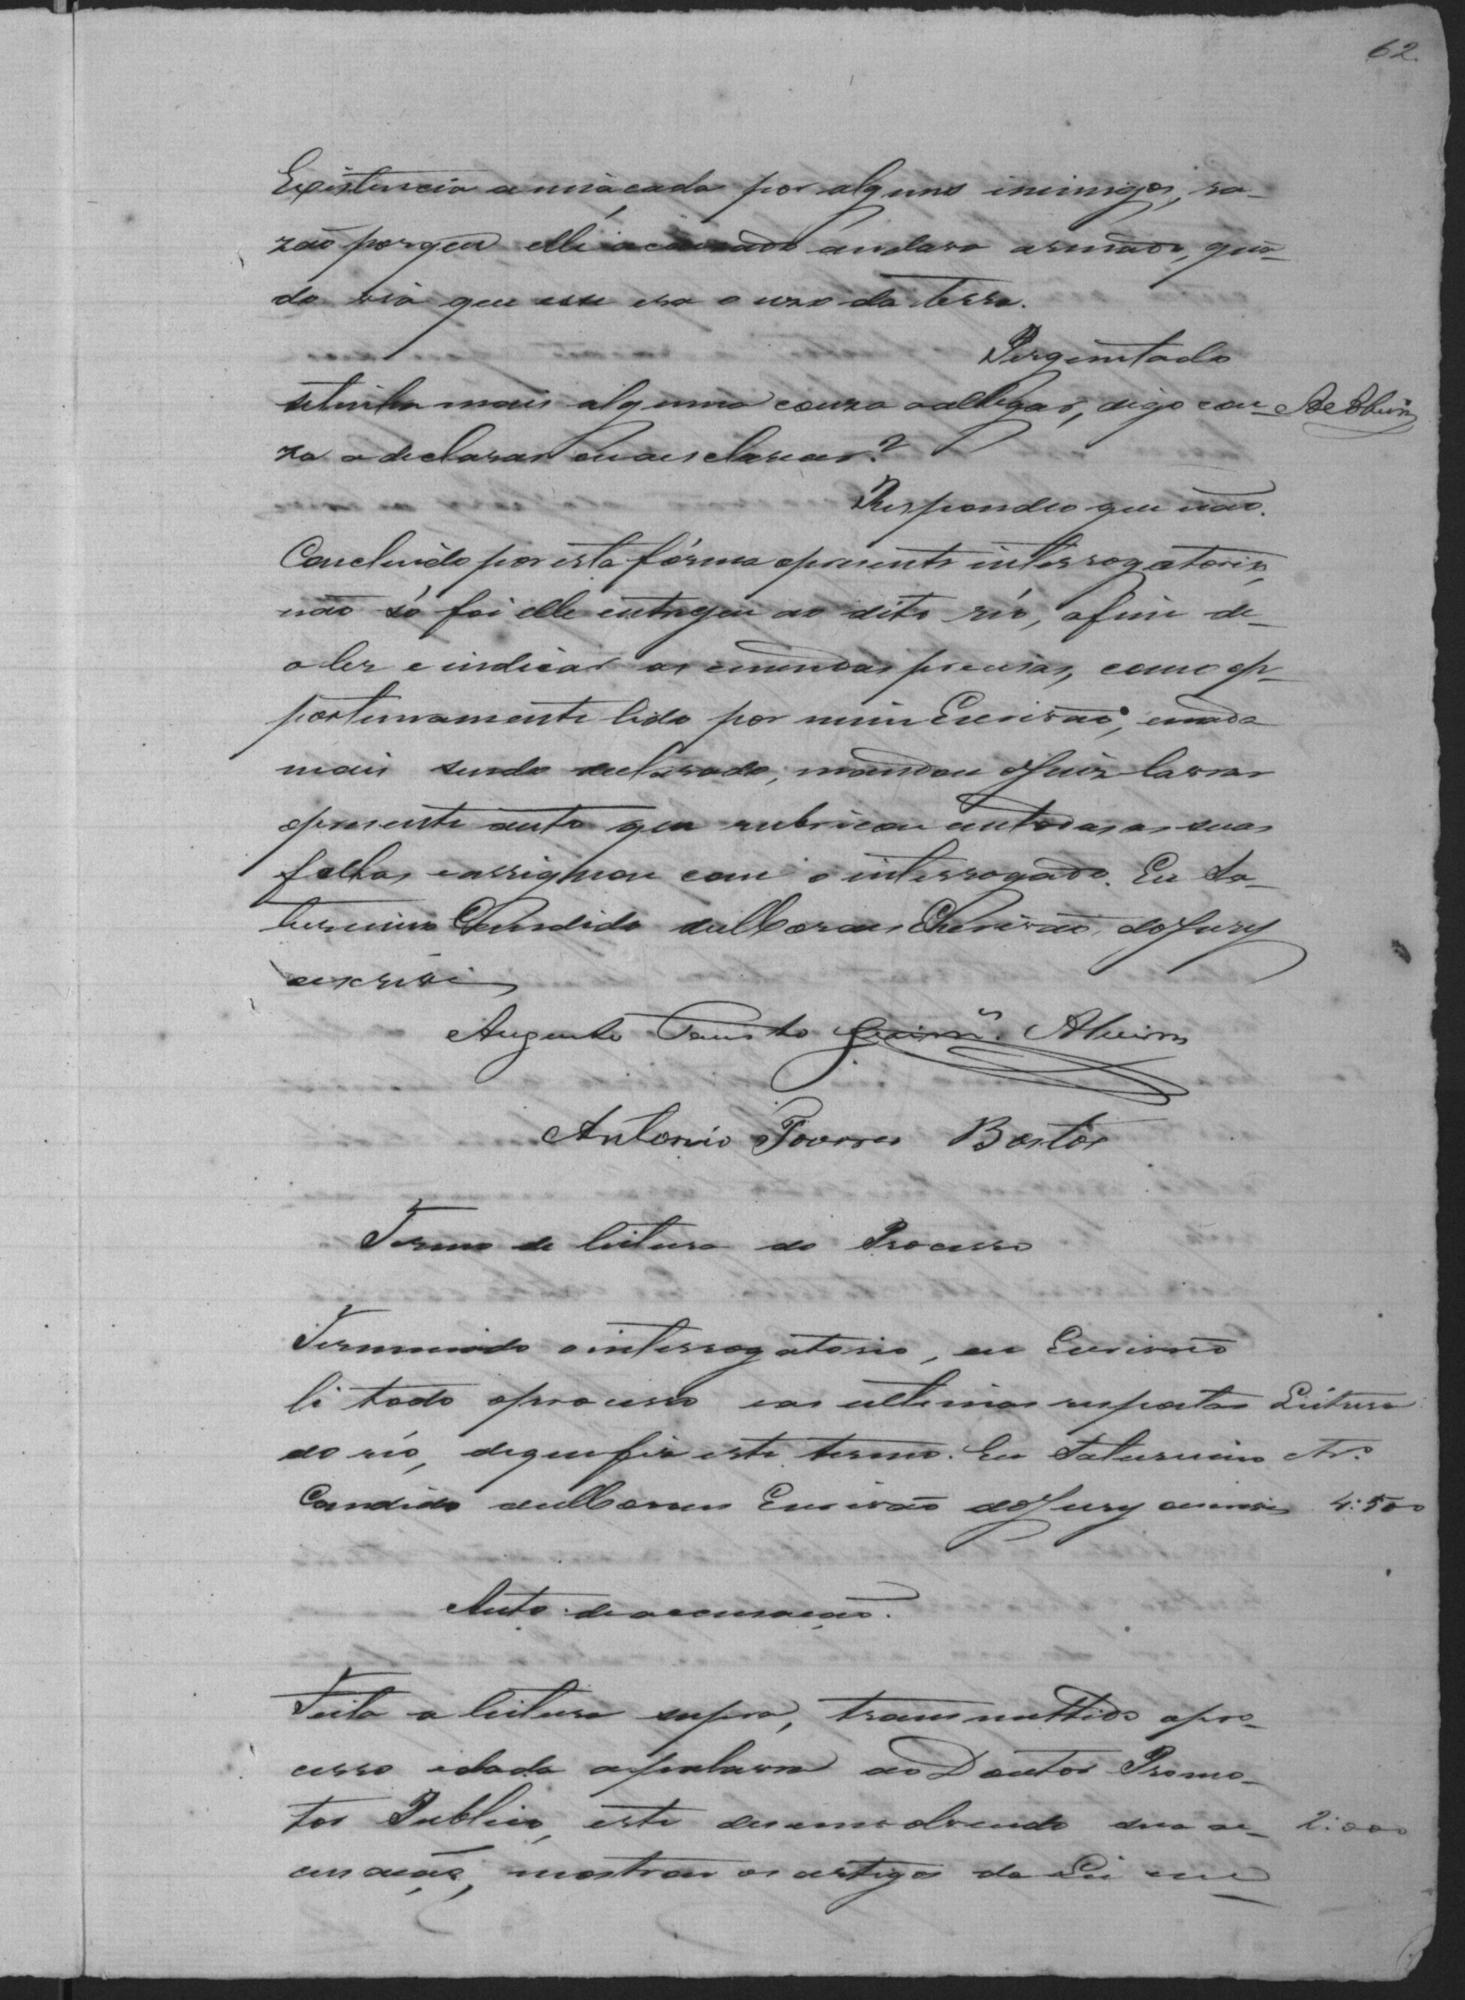 62
Existencia ameaçada por alguns inimigos, ra-
zão porque elle accusado andava armado, quan-
do via que esse era o uzo da terra.
Perguntado
se tinha mais alguma couza a allegar, digo cou-
za a declarar ou a esclarecer?
Respondeo que não.
Concluido por esta fórma o presente interrogatorio,
não só foi elle entregue ao dito réo, afim de
o ler e indicar as emendas precisas, como op-
portunamente lido por mim Escrivão; e nada
mais sendo declarado, mandou o Juiz lavrar
o presente auto que rubricou em todas as suas
folhas e assignou com o interrogado. Eu Sa-
turnino Candido de Moraes Escrivão do Jury
escrevi
Augusto Fausto Guimes. Alvim
Antonio Bastos
Termo de leitura do Processo
Terminado o interrogatorio, eu Escrivão
li todo o processo e as ultimas respostas Leitura
do réo, de que fiz este termo. Eu Saturnino
Candido de Moraes Escrivão do Jury escrevi 4:500
Auto de accusação.
Feita a leitura supra, transmittido o pro-
cesso e dada a palavra ao Doutor Promo-
tor Publico, este desenvolvendo sua ac- 2:000
cusação, mostrou os artigos da Lei em